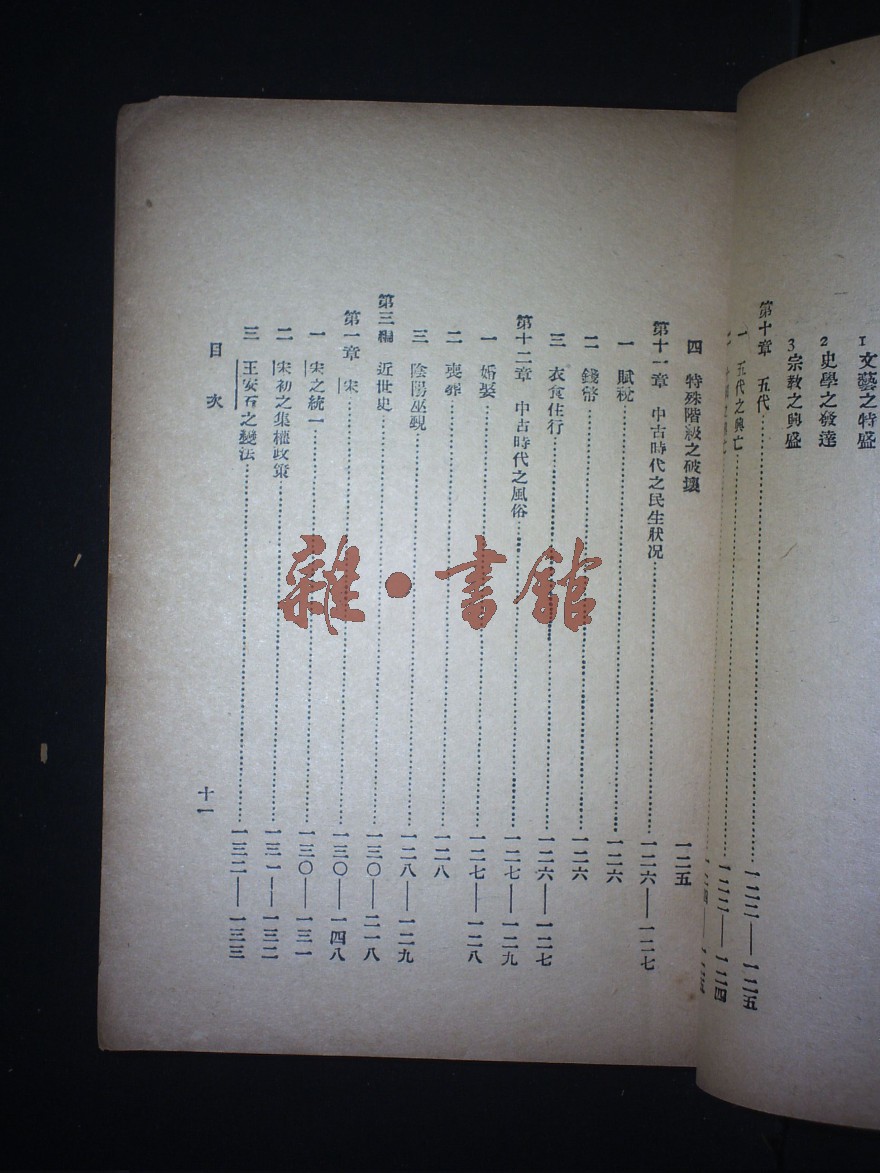 1 文藝之特盛
2 史學之發達
3 宗敎之興盛
第十章 五代……一二二——一二五
一 五代之興亡……一二二——一二四
四 特殊階級之破壞 一二五
第十一章 中古時代之民生狀况……一二六——一二七
一 賦稅……一二六
二 錢幣……一二六
三 衣食住行……一二六——一二七
第十二章 中古時代之風俗……一二七——一二九
一 婚娶……一二七——一二八
二 喪葬……一二八
三 陰陽巫覡……一二八——一二九
第三編 近世史……一三〇——二一八
第一章 宋……一三〇——一四八
一 宋之統一……一三〇——一三一
二 宋初之集權政策……一三一——一三二
三 王安石之變法……一三二——一三三
目次
十一
雜·書館